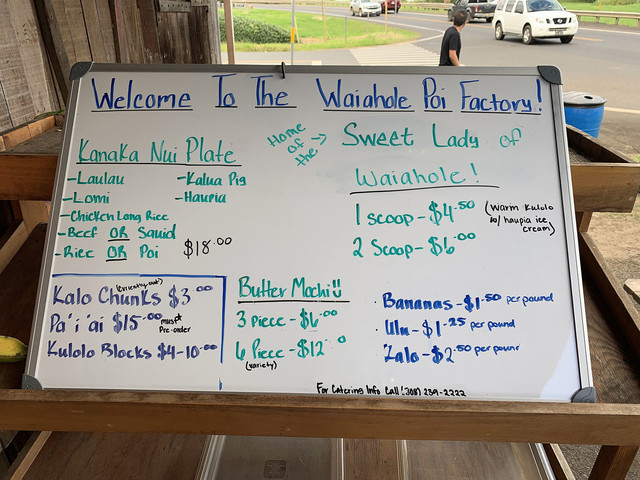 Welcome To The Waiahole Poi Factory!
Kanaka Nui Plate
-Laulau
-Lomi
-Chicken Long Rice
-Beef OR Squid
-Rice OR Poi
-Kalua Pig
-Haupia
$18.00
Home of the → Sweet Lady of
Waiahole!
1 scoop-$4.50
2 Scoop-$6.00
(warm Kulolo w/ haupia ice cream)
Kalo Chunks $3.00
Pa'i'ai $15.00 must Pre-order
Kulolo Blocks $4-10.00
Butter Mochi
3 piece - $6.00
6 Piece - $12.00
(variety)
· Bananas-$1.50 per pound
· Ulu-$1.25 per pound
· Kalo-$2.50 per pound
For Catering Info Call (808) 239-2222